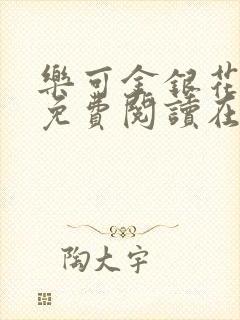 樂可金銀花
免費閱讀在
陶大宇